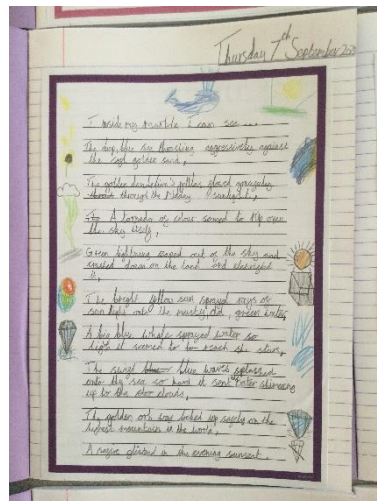 Thursday 7th September
Inside my marble I can see ....
The deep blue sea thrusting aggressively against
the soft golden sand,
The golden
through the sunlight,
A tornado of colour seemed to rip over
the sky itself,
Green lightning leaped out of the sky and
down on the land and electrified
it,
The bright yellow sun sprayed rays of
sun light onto the musty old, green water,
A big blue whale sprayed water so
high it seemed to reach the stars,
The blue waves splashed
onto the sea so hard it sent water
up to the clouds,
The golden orb was locked up safely on the
highest mountain in the world,
A in the evening sunset.